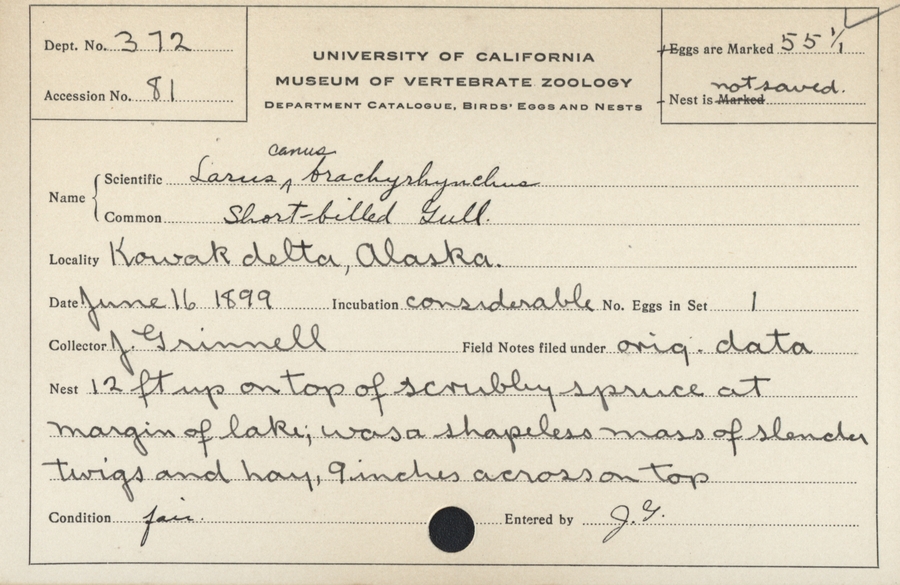 Dept. No. 372
Accession No. 81
UNIVERSITY OF CALIFORNIA
MUSEUM OF VERTEBRATE ZOOLOGY
DEPARTMENT CATALOGUE, BIRDS' EGGS AND NESTS
Eggs are Marked 55 1/1
not saved.
Nest is Marked
canus
Name
Scientific Larus ^ brachyrhynchus
Common Short-billed Gull.
Locality Kowak delta, Alaska.
Date June 16 1899 Incubation considerable No. Eggs in Set 1
Collector J. Grinnell Field Notes filed under orig. data
Nest 12 ft up on top of scrubby spruce at
margin of lake; was a shapeless mass of slender
twigs and hay, 9 inches across on top
Condition fair. Entered by J.G.